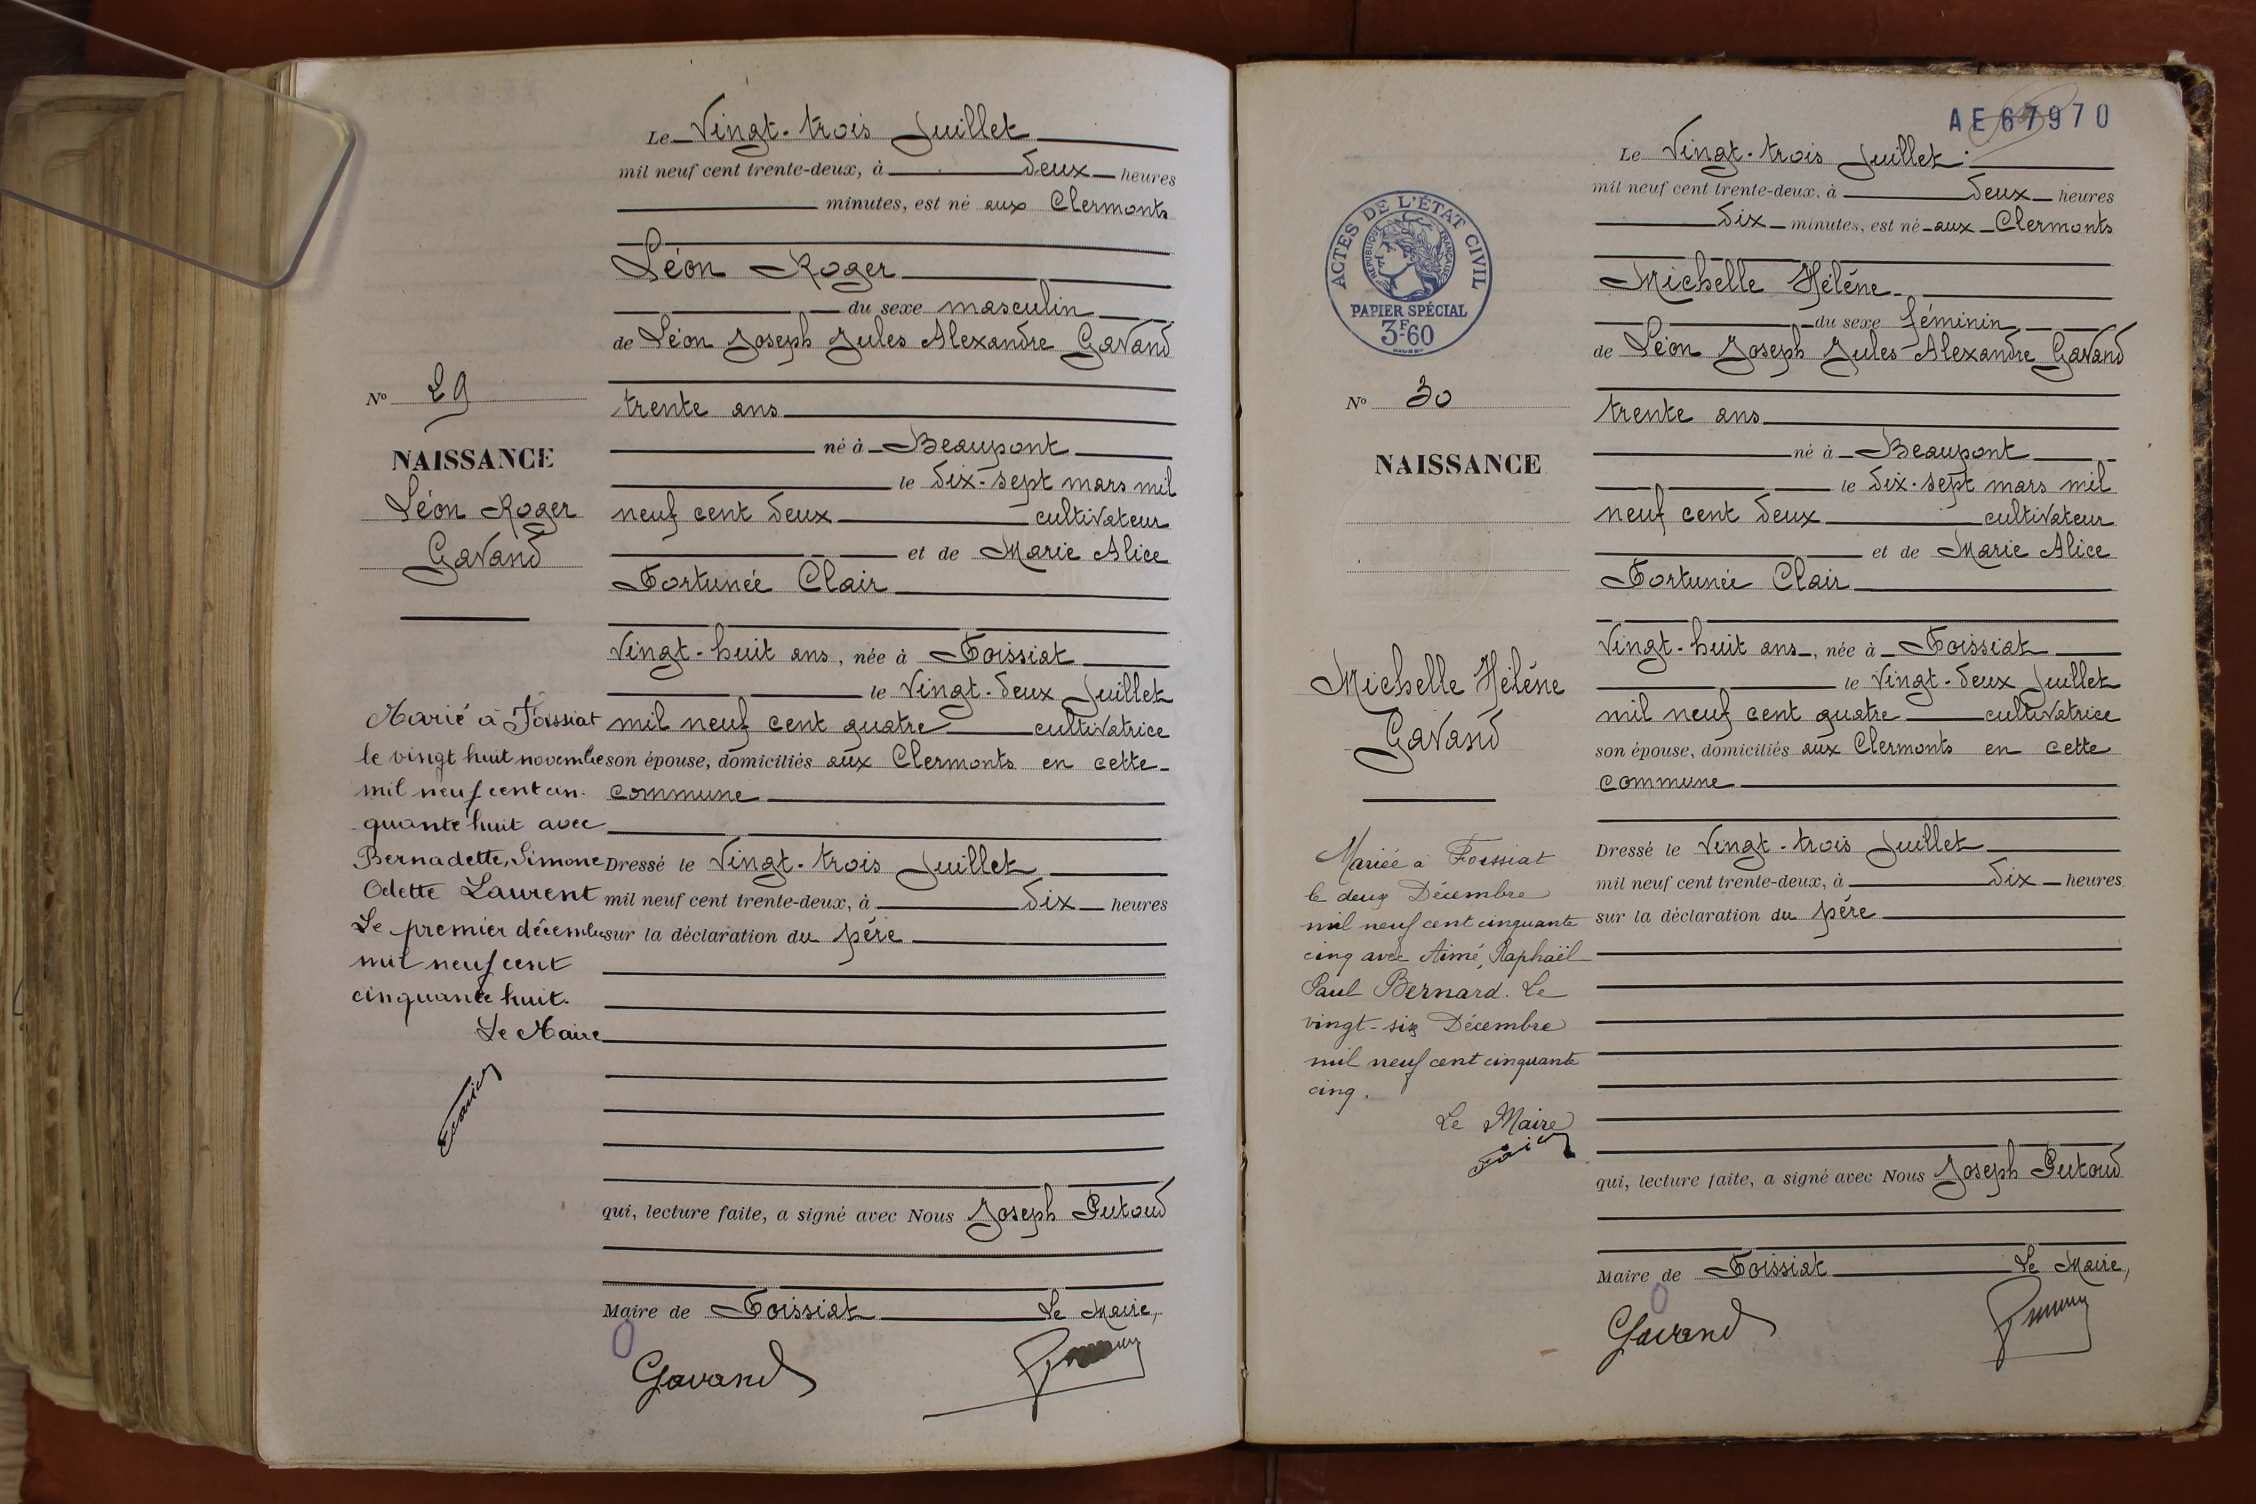 Le Vingt-trois Juillet
mil neuf cent trente-deux, à deux heures
minutes, est né aux Clermonts
Léon Roger
du sexe masculin
de Léon Joseph Jules Alexandre Gavand
trente ans
né à Beaupont
le dix-sept mars mil
neuf cent deux cultivateur
et de Marie Alice
Fortunée Clair
Vingt-huit ans, née à Foissiat
le Vingt-deux Juillet
mil neuf cent quatre cultivatrice
son épouse, domiciliés aux Clermonts en cette
commune
Dressé le Vingt-trois Juillet
mil neuf cent trente-deux, à dix heures
sur la déclaration du père
qui, lecture faite, a signé avec Nous Joseph Putoud
Maire de Foissiat Le Maire,
Gavand
No 29
NAISSANCE
Léon Roger
Gavand
Marié à Foissiat
le vingt huit novembre
mil neuf cent cin-
quante huit avec
Bernadette, Simone
Odette Laurent
Le premier décembre
mil neuf cent
cinquante huit.
Le Maire
AE 67970
Le Vingt-trois Juillet
mil neuf cent trente-deux, à deux heures
dix minutes, est né aux Clermonts
Michelle Hélène
du sexe féminin
de Léon Joseph Jules Alexandre Gavand
trente ans
né à Beaupont
le dix-sept mars mil
neuf cent deux cultivateur
et de Marie Alice
Fortunée Clair
Vingt-huit ans, née à Foissiat
le Vingt-deux Juillet
mil neuf cent quatre cultivatrice
son épouse, domiciliés aux Clermonts en cette
commune
Dressé le Vingt-trois Juillet
mil neuf cent trente-deux, à dix heures
sur la déclaration du père
qui, lecture faite, a signé avec Nous Joseph Putoud
Maire de Foissiat Le Maire,
Gavand
ACTES DE L'ÉTAT CIVIL
RÉPUBLIQUE FRANÇAISE
PAPIER SPÉCIAL
3F60
No 30
NAISSANCE
Michelle Hélène
Gavand
Mariée à Foissiat
le deux Décembre
mil neuf cent cinquante
cinq avec Aimé, Raphaël
Paul Bernard. Le
vingt-six Décembre
mil neuf cent cinquante
cinq.
Le Maire